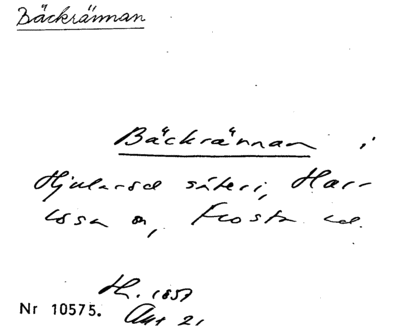 Bäckrännan
Bäckrännan i
Hjularöd säteri, Harr-
lösa sn, Frosta hd.
H. 1857
Nr 10575. Akt 21